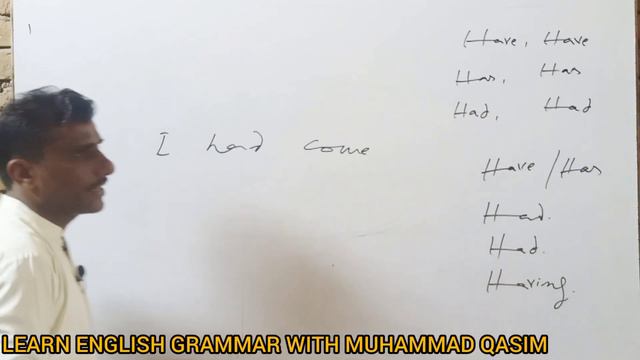 Have, Have
Has, Has
Had, Had
I had come
Have / Has
Had.
Had.
Having.
LEARN ENGLISH GRAMMAR WITH MUHAMMAD QASIM